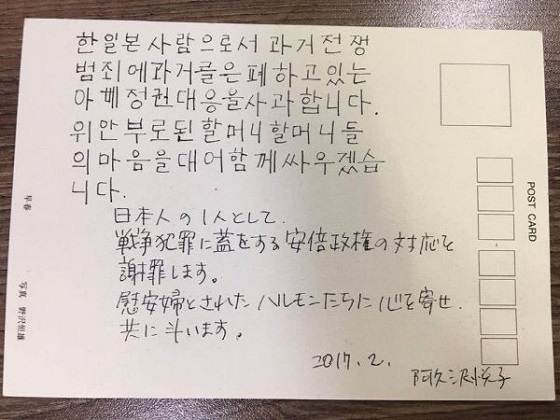 한일본사람으로서 과거전쟁
범죄에과거를은폐하고있는
아베정권대응을사과합니다.
위안부로된할머니할머니들
의마음을대어함께싸우겠습
니다.
日本人の1人として、
戦争犯罪に蓋をする安倍政権の対応を
謝罪します。
慰安婦とされたハルモニたちに心を寄せ、
共に斗います。
2017.2.
POST CARD
早春
写真